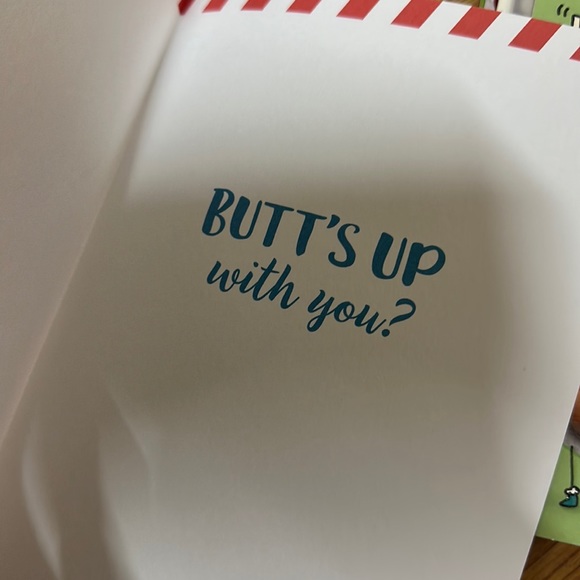 BUTT'S UP
with you?